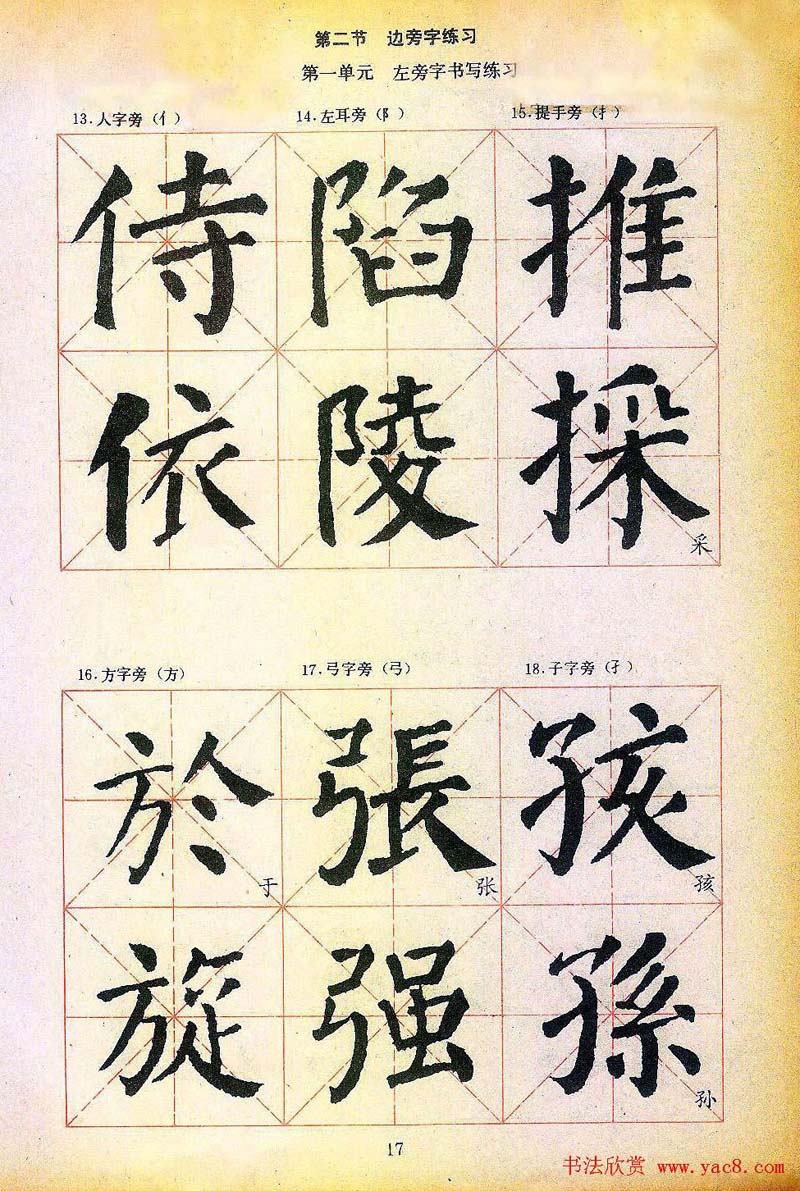 第二节 边旁字练习
第一单元 左旁字书写练习
13.人字旁（亻） 14.左耳旁（阝） 15.提手旁（扌）
侍 陷 推
依 陵 採
采
16.方字旁（方） 17.弓字旁（弓） 18.子字旁（孑）
於 張 孩
于 张 孩
旋 强 孫
孙
17
书法欣赏 www.yac8.com